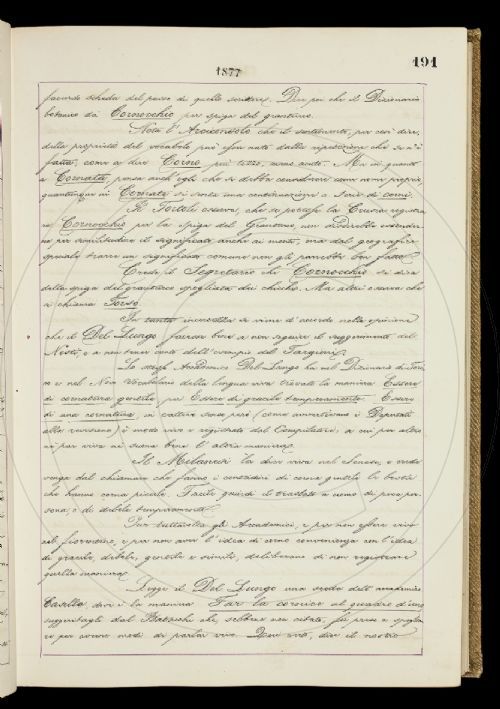 191
1877
facendo scheda del passo di quello scrittore. Dice poi che il Dizionario
botanico dà Cornocchio per spiga del granturco.
Nota l'Arciconsolo che il sentimento, per così dire,
della proprietà del vocabolo può esser nato dalla ripetizione che se n'è
fatta, come a dire Corno, più corno, corno acuto. Ma in quanto
a Cornata, pensa anch'egli che si debba considerare come nome proprio
quantunque in Cornata si senta una continuazione o serie di corni.
Il Tortoli osserva, che se potesse la Crusca registrare
Cornocchio per la spiga del Granturco, non dubiterebbe estenderne
per similitudine il significato anche ai monti, ma dal geografico
speciale trarre un significato comune non gli parrebbe ben fatto.
Crede il Segretario che Cornocchio si dica
della spiga del granturco spogliata dei chicchi. Ma altri osserva che
si chiama Torso.
In tanta incertezza si viene d'accordo nella opinione
che il Del Lungo facesse bene a non seguire il suggerimento del
Nesti, e a non tener conto dell'esempio del Targioni.
Lo stesso Accademico Del Lungo ha nel Dizionario di
e nel Novo Vocabolario della lingua viva trovata la maniera Essere
di cornatura gentile, per Essere di gracile temperamento. Essere
di una cornatura in cattivo senso però (come avvertivano i Deputati
alla revisione) è modo vivo e registrato dal Compilatore; a cui per altro
nè per viva nè suona bene l'altra maniera.
Il Milanesi la dice viva nel Senese, e crede
venga dal chiamare che fanno i contadini di corna gentile le bestie
che hanno corna piccole. Facile quindi il traslato a uomo di poca persona,
e di debole temperamento.
Pur tuttavolta gli Accademici, e per non essere viva
nel fiorentino, e per non aver l'idea di corno convenienza con l'idea
di gracile, debole, gentile e simili, deliberano di non registrare
quella maniera.
Legge il Del Lungo una scheda dell'accademico
Casella, dov'è la maniera Far la cornice al quadro d'uno
suggeritagli dal Batacchi che, sebbene non citato, fu preso a spogliare
per cavarne modi di parlar vivo. Quivi però, dice il nostro